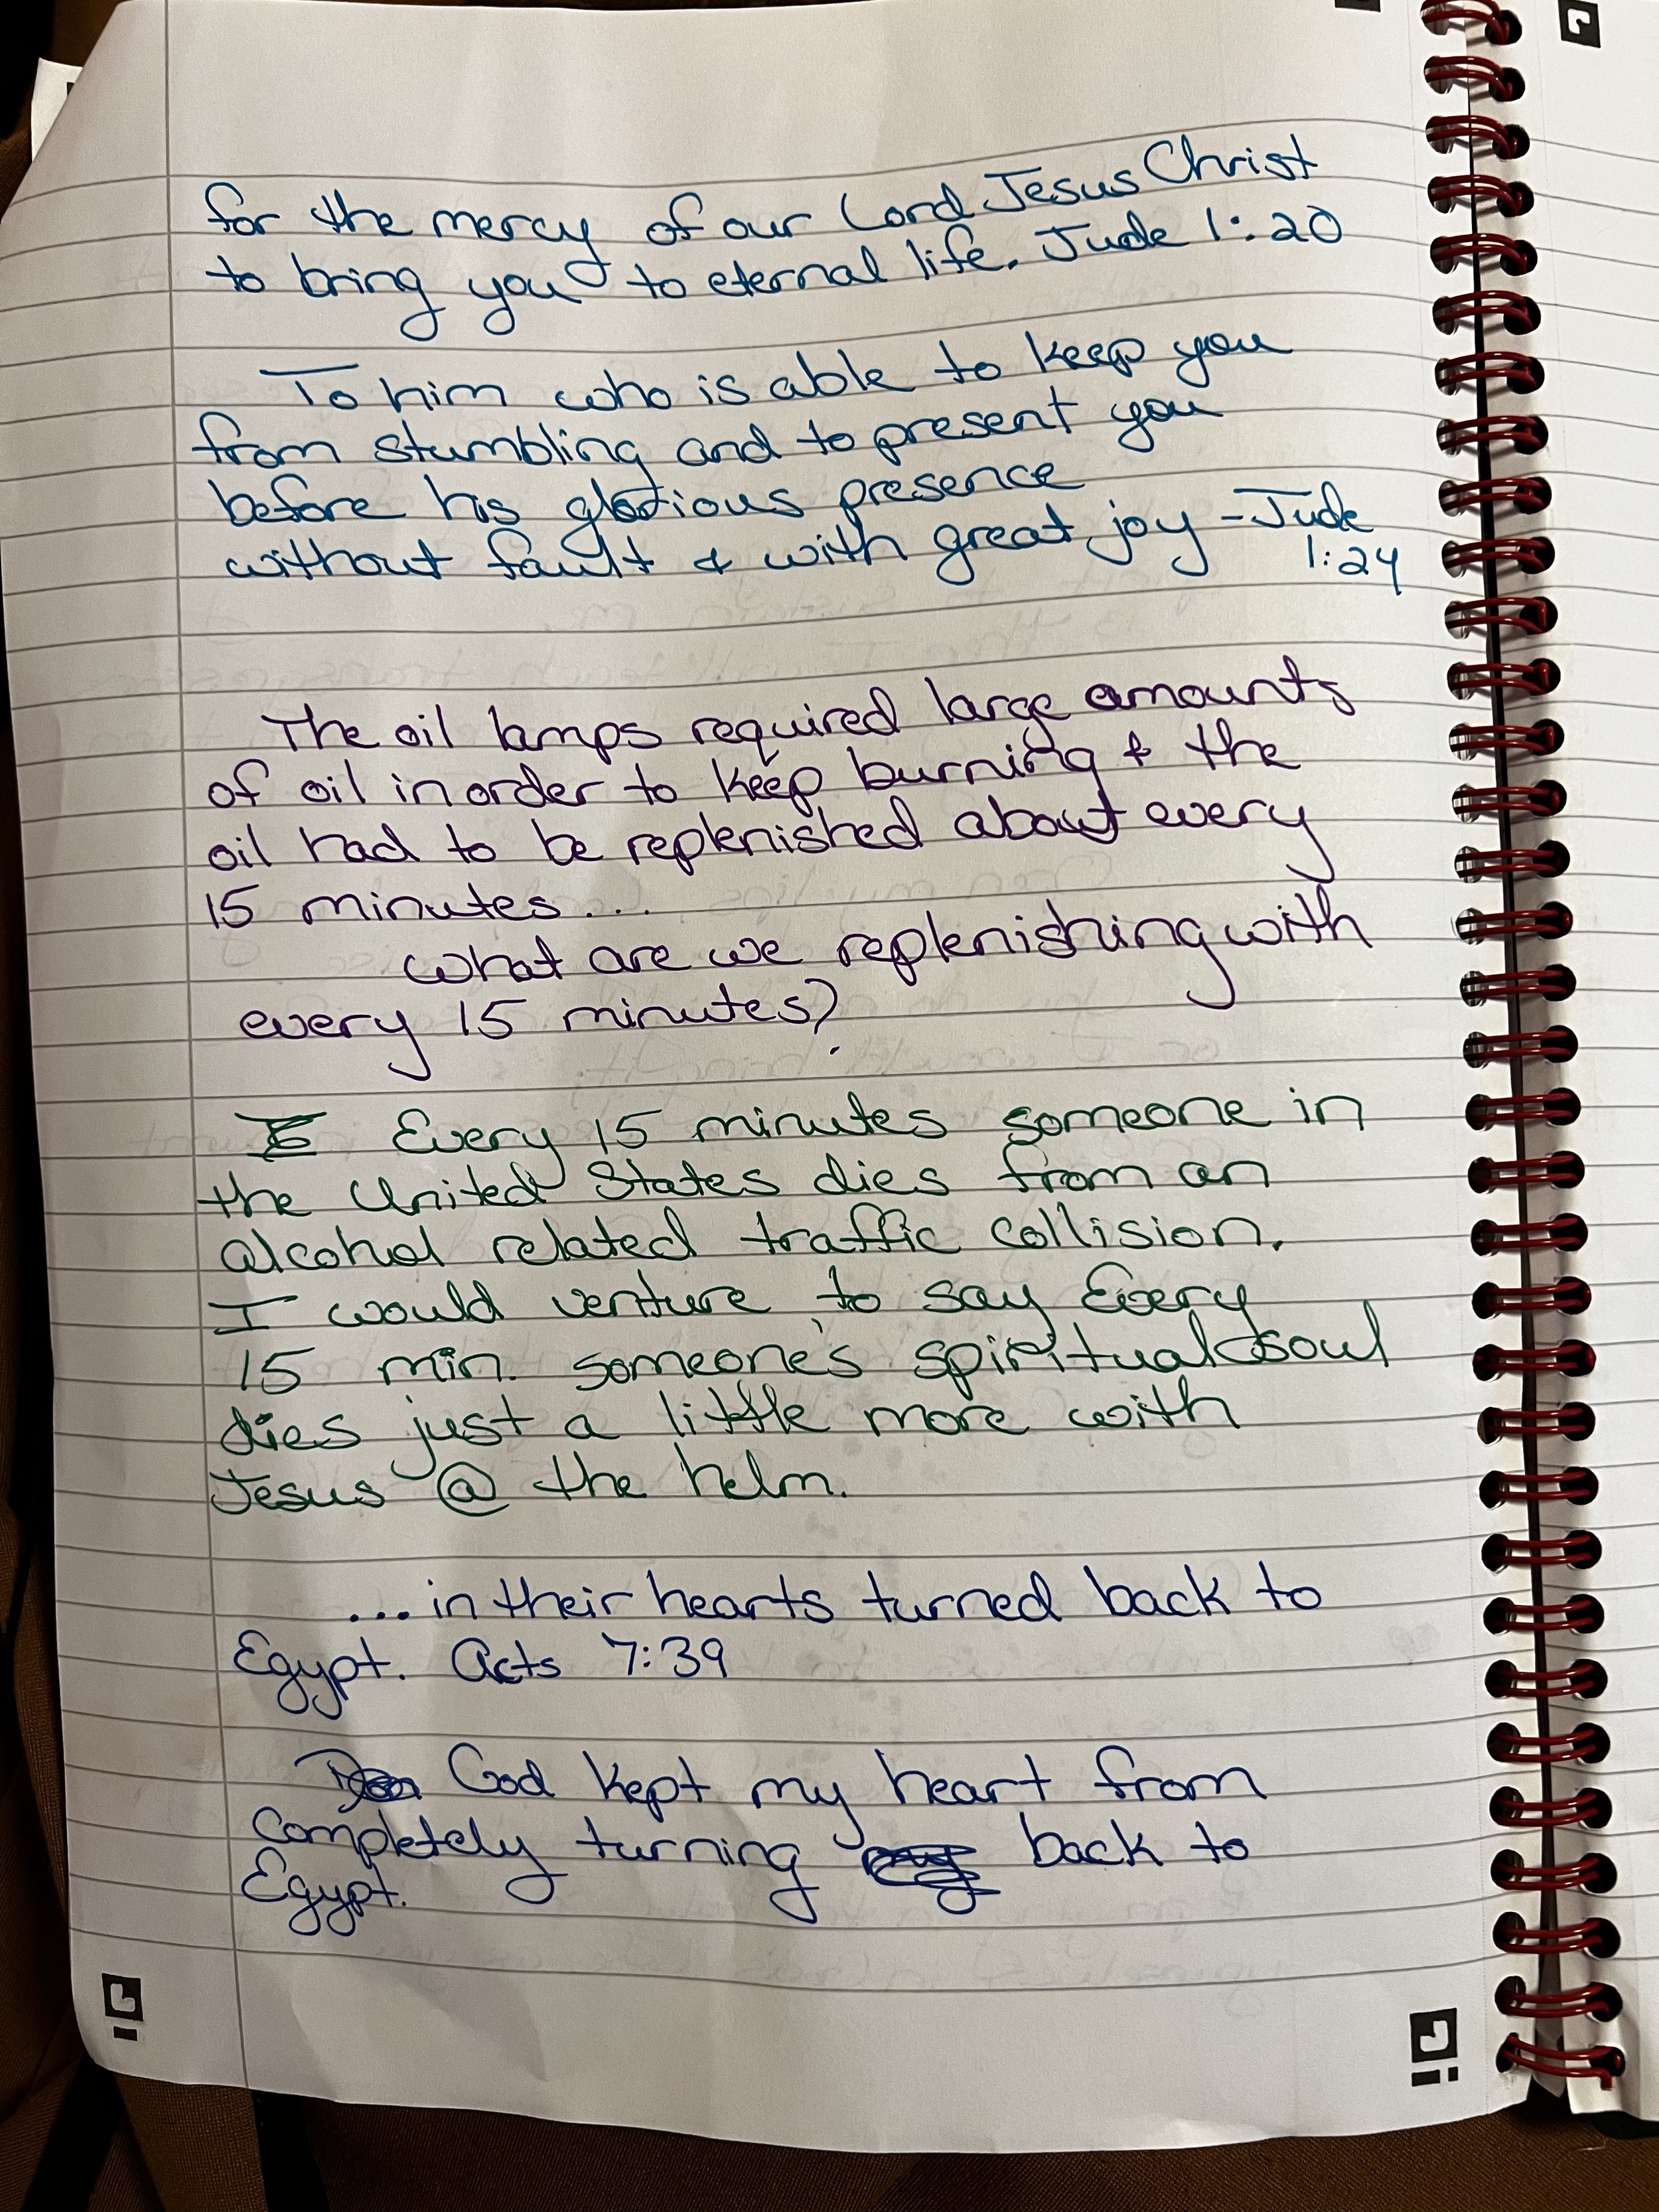 for the mercy of our Lord Jesus Christ
to bring you to eternal life. Jude 1:20
To him who is able to keep you
from stumbling and to present you
before his glorious presence
without fault & with great joy - Jude
1:24
The oil lamps required large amounts
of oil in order to keep burning & the
oil had to be replenished about every
15 minutes...
What are we replenishing with
every 15 minutes?
Every 15 minutes someone in
the United States dies from an
alcohol related traffic collision.
I would venture to say Every
15 min. someone's spiritual soul
dies just a little more with
Jesus @ the helm.
...in their hearts turned back to
Egypt. Acts 7:39
God kept my heart from
Completely turning back to
Egypt.